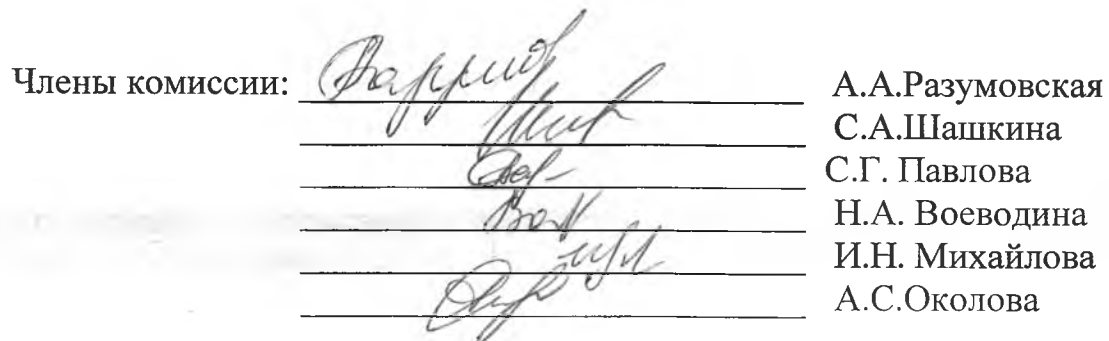 Члены комиссии: А.А.Разумовская
С.А.Шашкина
С.Г. Павлова
Н.А. Воеводина
И.Н. Михайлова
А.С.Околова